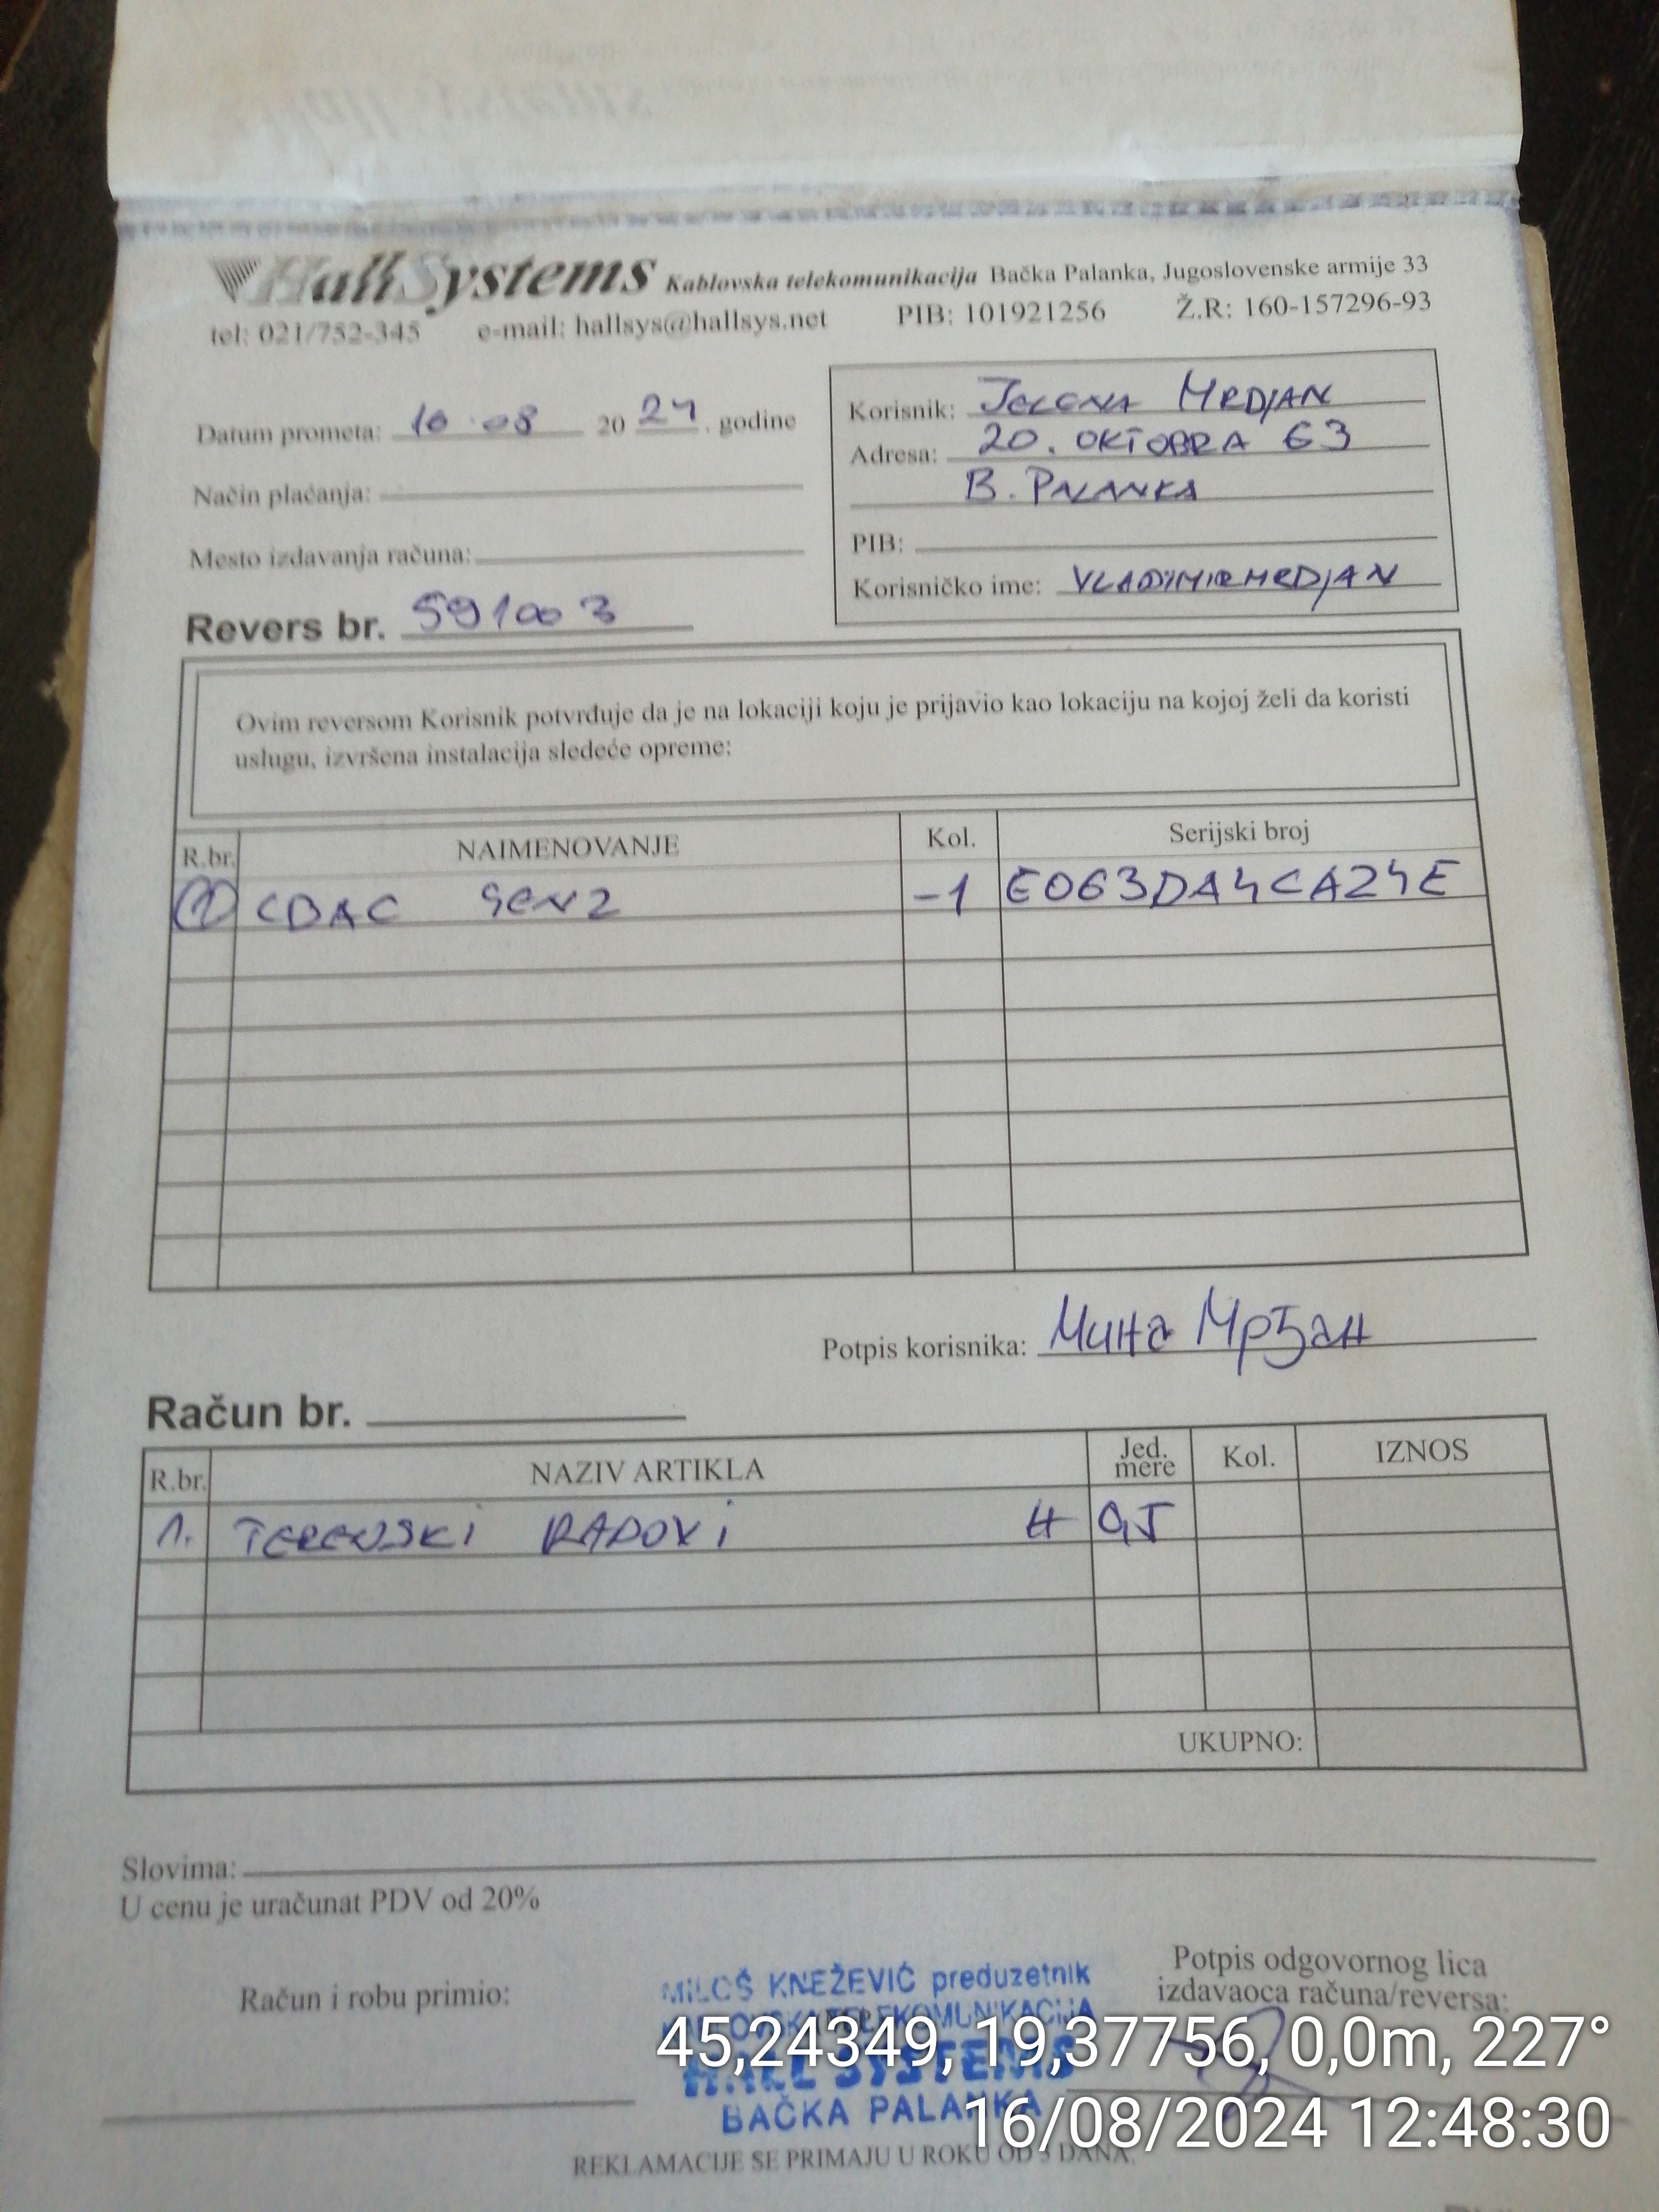 HallSystems Kablovska telekomunikacija Bačka Palanka, Jugoslovenske armije 33
tel: 021/752-345 e-mail: hallsys@hallsys.net PIB: 101921256 Ž.R: 160-157296-93
Datum prometa: 16.08 20 24. godine
Način plaćanja:
Mesto izdavanja računa:
Revers br. 591003
Korisnik: JELENA MRDJAN
Adresa: 20. OKTOBRA 63
B. PALANKA
PIB:
Korisničko ime: VLADIMIRMRDJAN
Ovim reversom Korisnik potvrđuje da je na lokaciji koju je prijavio kao lokaciju na kojoj želi da koristi
uslugu, izvršena instalacija sledeće opreme:
R.br. NAIMENOVANJE Kol. Serijski broj
1 CDAC GEN2 -1 E063DA4CA24E
Potpis korisnika: Мина Мрђан
Račun br.
R.br. NAZIV ARTIKLA Jed. mere Kol. IZNOS
1. TERENSKI RADOVI H 0,5
UKUPNO:
Slovima:
U cenu je uračunat PDV od 20%
Račun i robu primio:
MILOŠ KNEŽEVIĆ preduzetnik
KABLOVSKA TELEKOMUNIKACIJA
HALL SYSTEMS
BAČKA PALANKA
Potpis odgovornog lica
izdavaoca računa/reversa:
45,24349, 19,37756, 0,0m, 227°
16/08/2024 12:48:30
REKLAMACIJE SE PRIMAJU U ROKU OD 3 DANA.